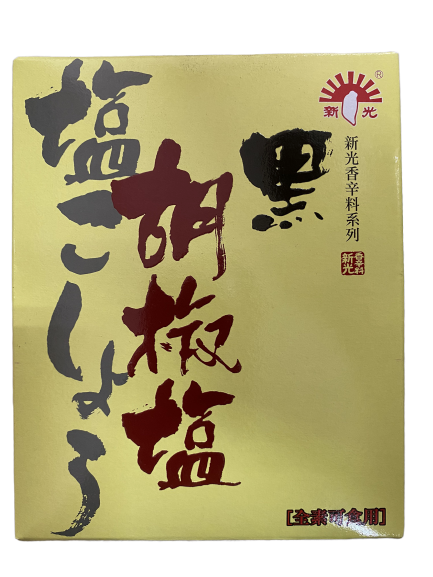 新光
®
新光香辛料系列
香辛料
新光
黑
胡椒塩
塩こしょう
[全素可食用]